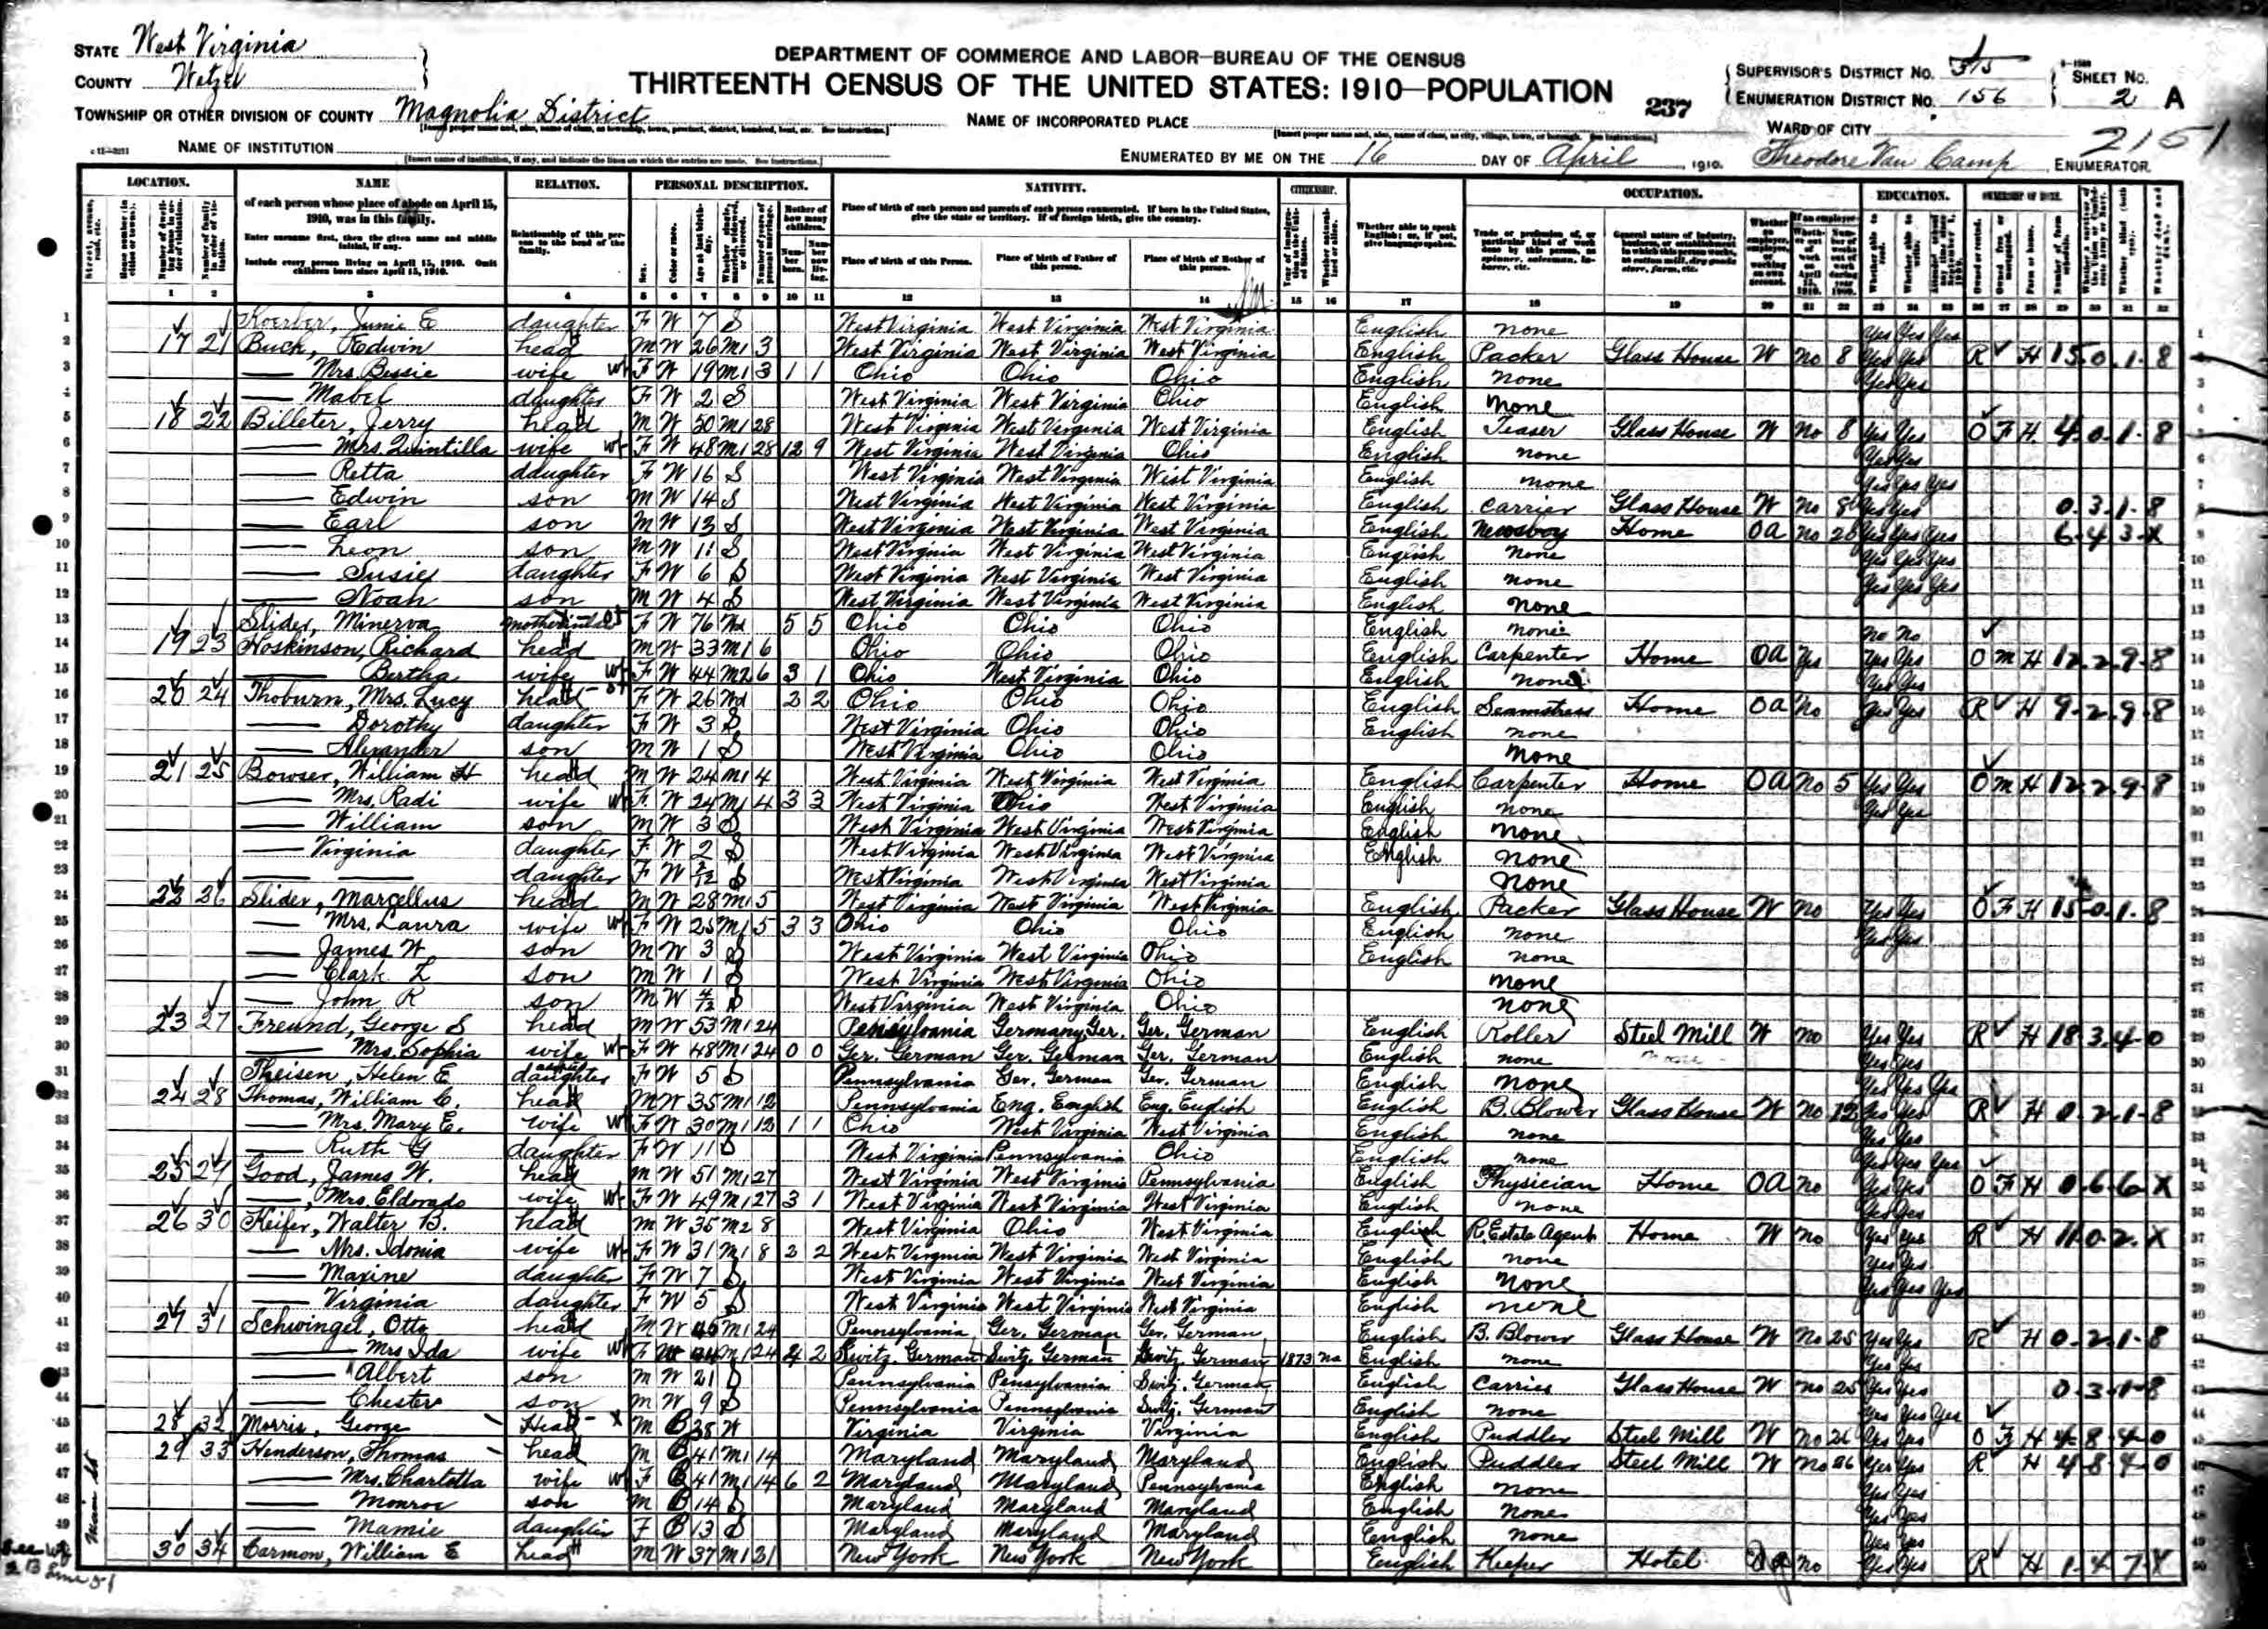 STATE West Virginia
COUNTY Wetzel
TOWNSHIP OR OTHER DIVISION OF COUNTY Magnolia District
NAME OF INSTITUTION
DEPARTMENT OF COMMERCE AND LABOR—BUREAU OF THE CENSUS
THIRTEENTH CENSUS OF THE UNITED STATES: 1910—POPULATION
237
NAME OF INCORPORATED PLACE
ENUMERATED BY ME ON THE 16 DAY OF April, 1910. Theodore Van Camp, ENUMERATOR.
SUPERVISOR'S DISTRICT NO.
ENUMERATION DISTRICT NO. 156
SHEET NO. 2 A
WARD OF CITY
2151
LOCATION. NAME RELATION. PERSONAL DESCRIPTION. NATIVITY. CITIZENSHIP. OCCUPATION. EDUCATION.
of each person whose place of abode on April 15, 1910, was in this family.
Enter surname first, then the given name and middle initial, if any.
Include every person living on April 15, 1910. Omit children born since April 15, 1910.
Relationship of this person to the head of the family.
Place of birth of each person and parents of each person enumerated. If born in the United States, give the state or territory. If of foreign birth, give the country.
Place of birth of this Person. Place of birth of Father of this person. Place of birth of Mother of this person.
1 Koerber, Junie E daughter F W 7 S West Virginia West Virginia West Virginia English none Yes Yes Yes
2 17 21 Buck, Edwin head M W 26 M1 3 West Virginia West Virginia West Virginia English Packer Glass House W No 8 Yes Yes R H 15-0-1-8
3 Mrs. Bessie wife F W 19 M1 3 1 1 Ohio Ohio Ohio English none Yes Yes
4 Mabel daughter F W 2 S West Virginia West Virginia Ohio English none
5 18 22 Billeter, Jerry head M W 50 M1 28 West Virginia West Virginia West Virginia English Teaser Glass House W No 8 Yes Yes O F H 4-0-1-8
6 Mrs. Quintilla wife F W 48 M1 28 12 9 West Virginia West Virginia Ohio English none Yes Yes
7 Retta daughter F W 16 S West Virginia West Virginia West Virginia English none Yes Yes Yes
8 Edwin son M W 14 S West Virginia West Virginia West Virginia English Carrier Glass House W No 8 Yes Yes 0-3-1-8
9 Earl son M W 13 S West Virginia West Virginia West Virginia English Newsboy Home OA No Yes Yes Yes 6-4-3-X
10 Leon son M W 11 S West Virginia West Virginia West Virginia English none Yes Yes Yes
11 Susie daughter F W 6 S West Virginia West Virginia West Virginia English none Yes Yes Yes
12 Noah son M W 4 S West Virginia West Virginia West Virginia English none
13 Slider, Minerva mother in law F W 76 Wd 5 5 Ohio Ohio Ohio English none no no
14 19 23 Hoskinson, Richard head M W 33 M1 6 Ohio Ohio Ohio English Carpenter Home OA Yes Yes Yes O M H 12-2-9-8
15 Bertha wife F W 44 M2 6 3 1 Ohio West Virginia Ohio English none Yes Yes
16 20 24 Thoburn, Mrs. Lucy head F W 26 Wd 2 2 Ohio Ohio Ohio English Seamstress Home OA No Yes Yes R H 9-2-9-8
17 Dorothy daughter F W 3 S West Virginia Ohio Ohio English none
18 Alexander son M W 1 S West Virginia Ohio Ohio none
19 21 25 Bowser, William H head M W 24 M1 4 West Virginia West Virginia West Virginia English Carpenter Home OA No 5 Yes Yes O M H 12-2-9-8
20 Mrs. Radi wife F W 24 M1 4 3 3 West Virginia Ohio West Virginia English none Yes Yes
21 William son M W 3 S West Virginia West Virginia West Virginia English none
22 Virginia daughter F W 2 S West Virginia West Virginia West Virginia English none
23 daughter F W S West Virginia West Virginia West Virginia none
24 22 26 Slider, Marcellus head M W 28 M1 5 West Virginia West Virginia West Virginia English Packer Glass House W No Yes Yes O F H 15-0-1-8
25 Mrs. Laura wife F W 25 M1 5 3 3 Ohio Ohio Ohio English none Yes Yes
26 James W son M W 3 S West Virginia West Virginia Ohio English none
27 Clark L son M W 1 S West Virginia West Virginia Ohio none
28 John R son M W 4/12 S West Virginia West Virginia Ohio none
29 23 27 Freund, George S head M W 53 M1 24 Pensylvania Germany Ger. Ger. German English Roller Steel Mill W no Yes Yes R H 18-3-4-0
30 Mrs. Sophia wife F W 48 M1 24 0 0 Ger. German Ger. German Ger. German English none Yes Yes
31 Theisen, Helen E daughter F W 5 S Pennsylvania Ger. German Ger. German English none Yes Yes Yes
32 24 28 Thomas, William C. head M W 35 M1 12 Pennsylvania Eng. English Eng. English English B. Blower Glass House W No 12 Yes Yes R H 0-2-1-8
33 Mrs. Mary E. wife F W 30 M1 12 1 1 Ohio West Virginia West Virginia English none Yes Yes
34 Ruth G daughter F W 11 S West Virginia Pennsylvania Ohio English none Yes Yes Yes
35 25 29 Good, James W. head M W 51 M1 27 West Virginia West Virginia Pennsylvania English Physician Home OA no Yes Yes O F H 0-6-6-X
36 Mrs. Eldorado wife F W 49 M1 27 3 1 West Virginia West Virginia West Virginia English none Yes Yes
37 26 30 Keifer, Walter B. head M W 35 M2 8 West Virginia Ohio West Virginia English R. Estate Agent Home W no Yes Yes R H 11-0-2-X
38 Mrs. Idonia wife F W 31 M1 8 2 2 West Virginia West Virginia West Virginia English none Yes Yes
39 Maxine daughter F W 7 S West Virginia West Virginia West Virginia English none Yes Yes Yes
40 Virginia daughter F W 5 S West Virginia West Virginia West Virginia English none
41 27 31 Schwingel, Otto head M W M1 24 Pennsylvania Ger. German Ger. German English B. Blower Glass House W No 25 Yes Yes R H 0-2-1-8
42 Mrs Ida wife F W 44 M1 24 2 Switz. German Switz. German Switz. German 1873 na English none Yes Yes
43 Albert son M W 21 S Pennsylvania Pensylvania Switz. German English Carrier Glass House W no 25 Yes Yes 0-3-1-8
44 Chester son M W 9 S Pennsylvania Pennsylvania Switz. German English none Yes Yes Yes
45 28 32 Morris, George Head M B 38 W Virginia Virginia Virginia English Puddler Steel Mill W No 26 Yes Yes O F H 4-8-4-0
46 29 33 Henderson, Thomas head M B 41 M1 14 Maryland Maryland Maryland English Puddler Steel Mill W No 26 Yes Yes R H 4-8-4-0
47 Mrs. Charlotta wife F B 41 M1 14 6 2 Maryland Maryland Pennsylvania English none Yes Yes
48 Monroe son M B 14 S Maryland Maryland Maryland English none Yes Yes
49 Mamie daughter F B 13 S Maryland Maryland Maryland English none Yes Yes
50 30 34 Carmon, William E head M W 37 M1 New York New York New York English Keeper Hotel no Yes Yes R H 1-4-7-X
Main St